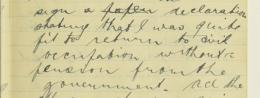 sign a paper declaration
stating that I was quite
fit to return to civil
occupation without a
pension from the
government. at the